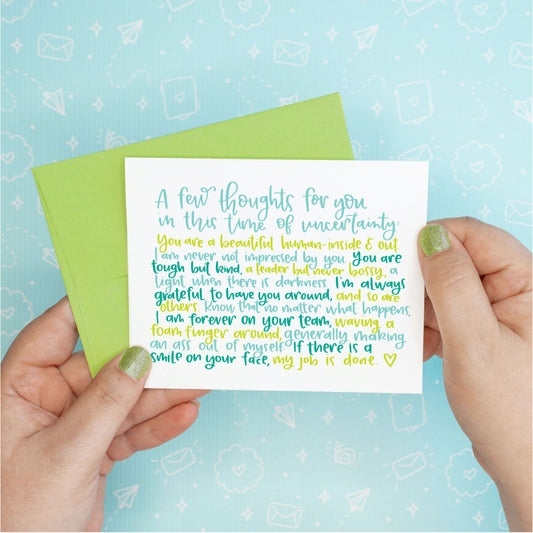 A few thoughts for you
in this time of uncertainty:
You are a beautiful human-inside & out.
I am never not impressed by you. You are
tough but kind, a leader but never bossy, a
light when there is darkness. I'm always
grateful to have you around, and so are
others. Know that no matter what happens,
I am forever on your team, waving a
foam finger around, generally making
an ass out of myself. If there is a
smile on your face, my job is done. ♡